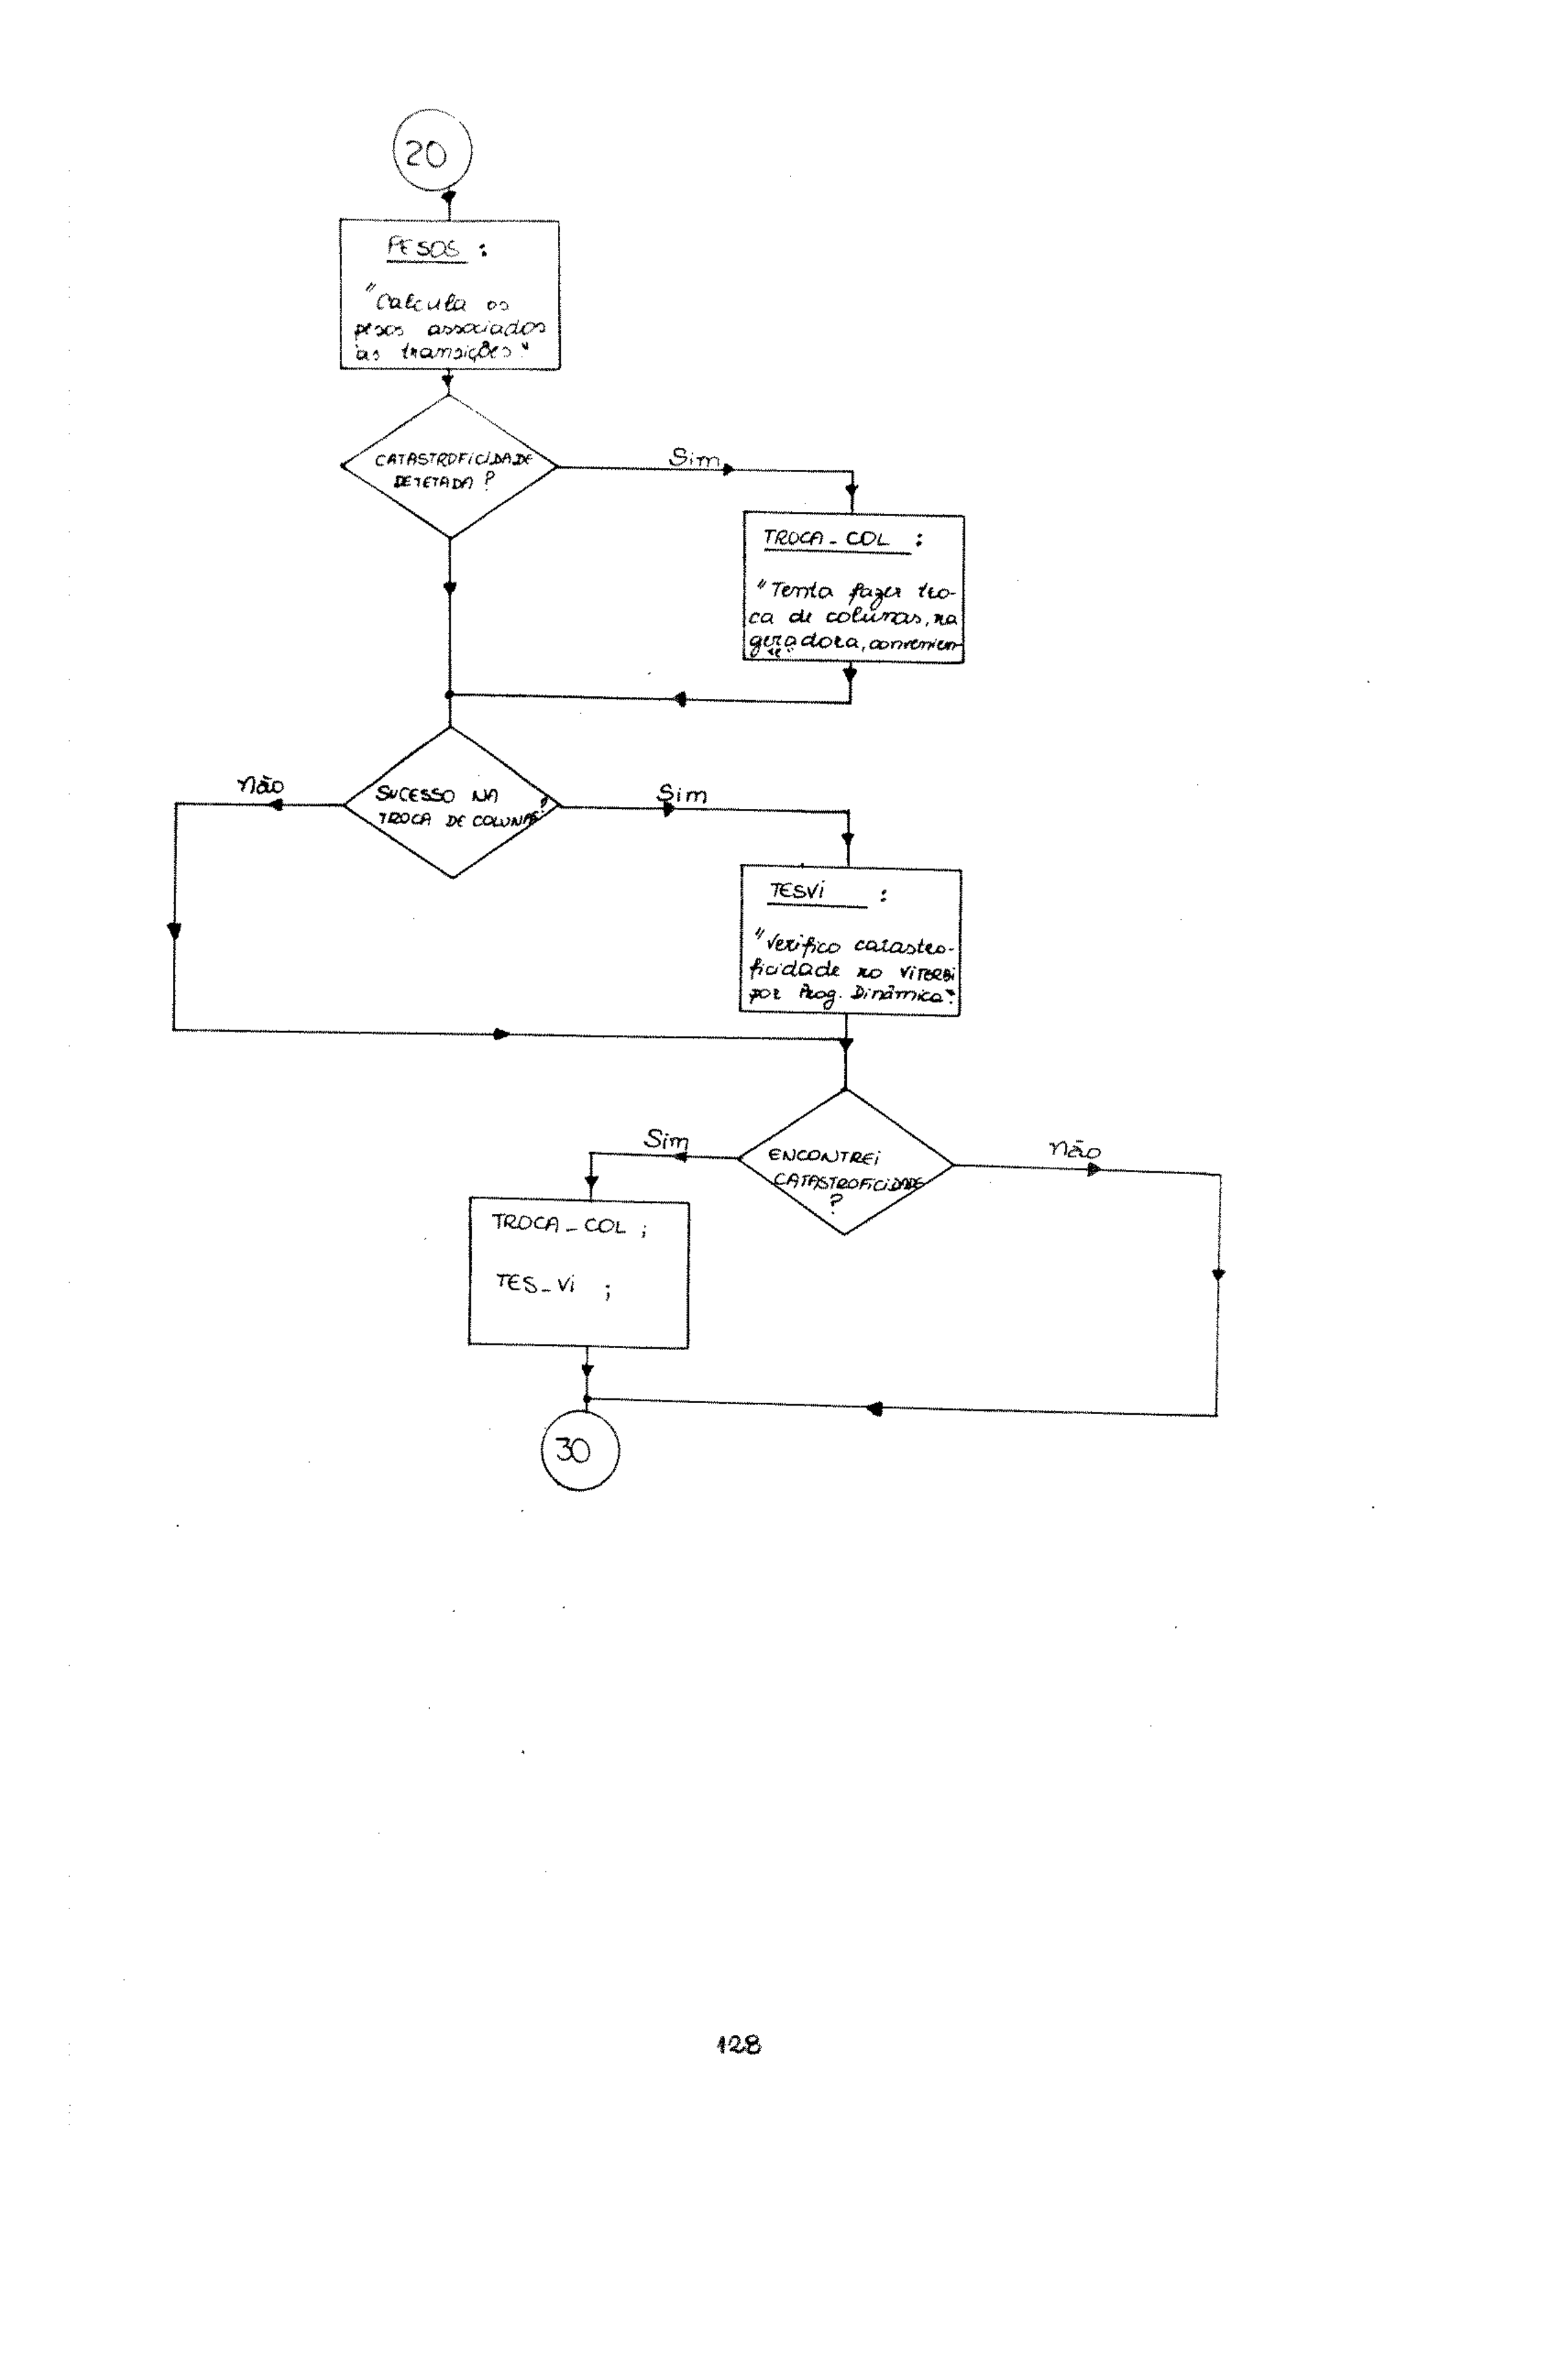 20
PESOS :
"Calcula os
pesos associados
às transições"
CATASTROFICIDADE
DETETADA ?
Sim
TROCA_COL :
"Tenta fazer tro-
ca de colunas, na
geradora, convenien-
te".
SUCESSO NA
TROCA DE COLUNAS?
Não
Sim
TESVI :
"Verifico catastro-
ficidade no VITERBI
por Prog. Dinâmica".
ENCONTREI
CATASTROFICIDADE
?
Sim
Não
TROCA_COL ;
TES_VI ;
30
128